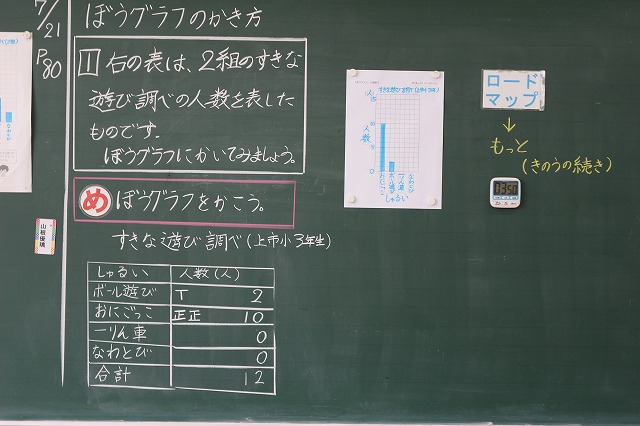 7/21
P80
ぼうグラフのかき方
1 右の表は、2組のすきな
遊び調べの人数を表した
ものです。
ぼうグラフにかいてみましょう。
め ぼうグラフをかこう。
すきな遊び調べ(上市小3年生)
しゅるい 人数(人)
ボール遊び T 2
おにごっこ 正正 10
一りん車 0
なわとび 0
合計 12
すきな遊び調べ(上市小3年)
人
人数
おにごっこ
ボール遊び
一りん車
なわとび
しゅるい
ロード
マップ
↓
もっと
(きのうの続き)